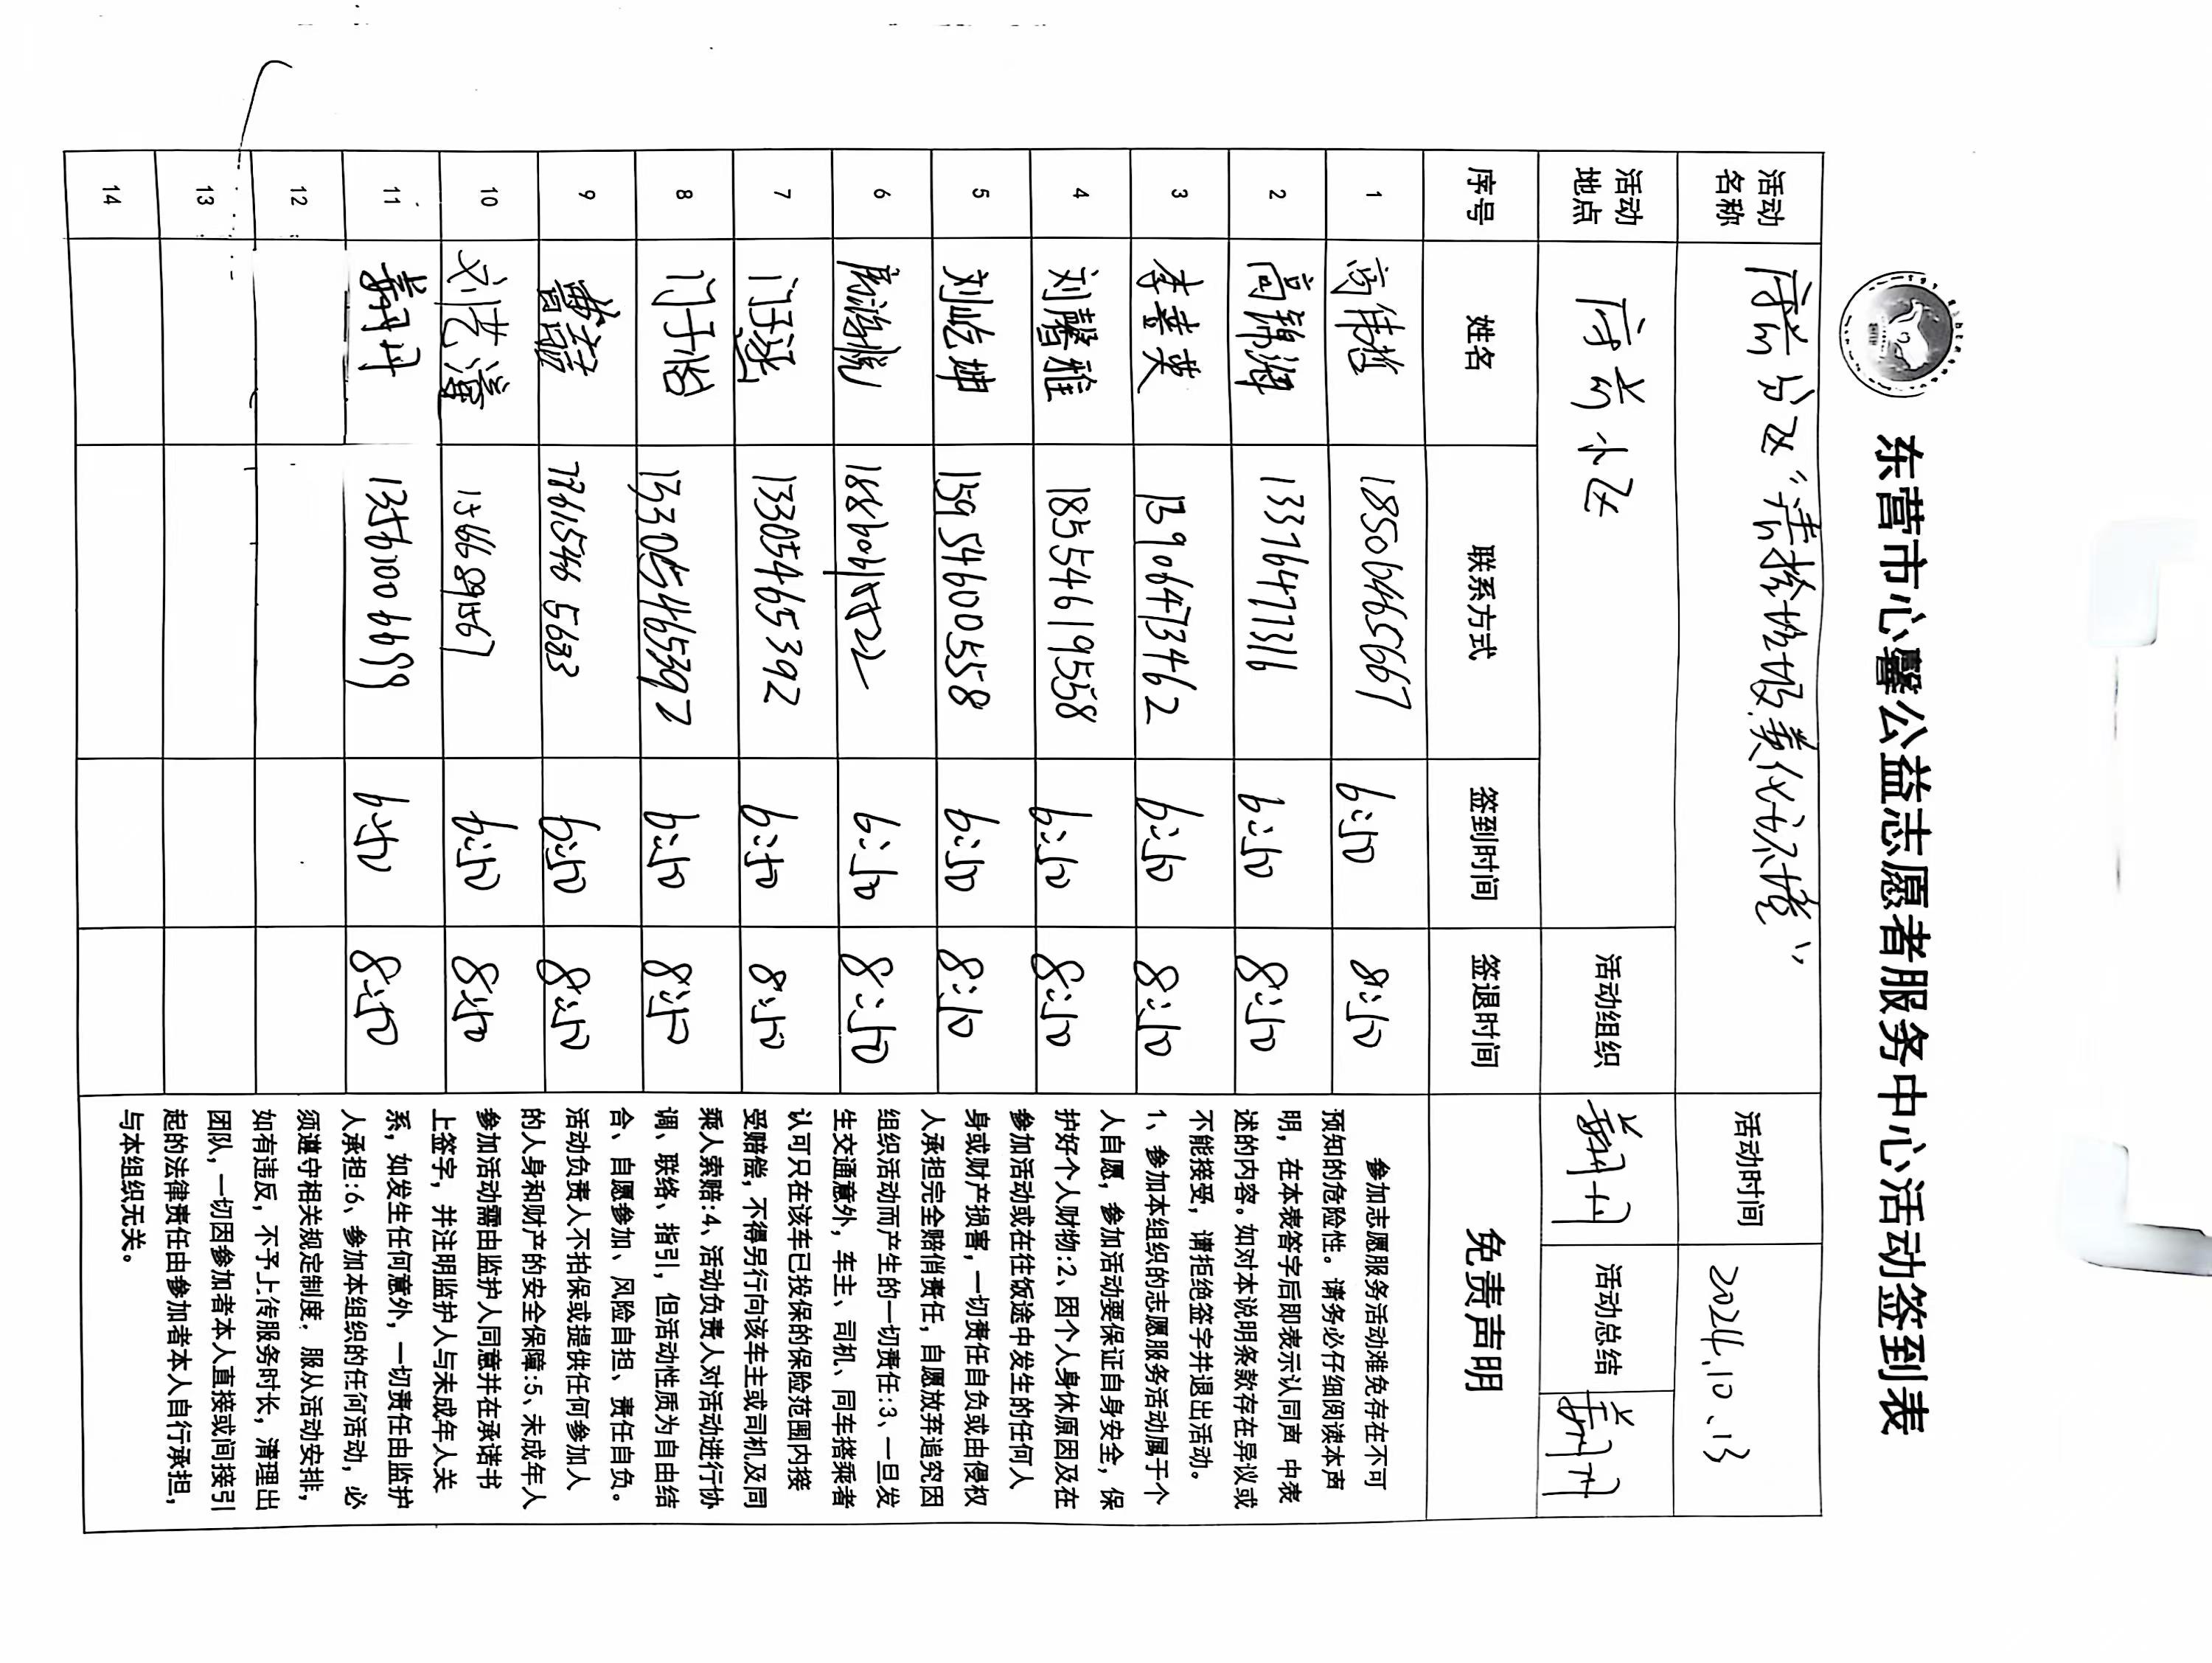 东营市心馨公益志愿者服务中心活动签到表
活动名称 府前分队“清捡垃圾美化环境” 活动时间 2024.10.13
活动地点 府前小区 活动组织 活动总结
序号 姓名 联系方式 签到时间 签退时间 免责声明
1 18506465667 6:50 8:50
2 高锦海 13376471316 6:50 8:50
3 李喜英 13906473462 6:50 8:50
4 刘馨雅 18554619558 6:50 8:50
5 刘屹坤 15954600558 6:50 8:50
6 6:50 8:50
7 门于涵 13305465392 6:50 8:50
8 门于怡 13305465392 6:50 8:50
9 5683 6:50 8:50
10 刘艺 15666891567 6:50 8:50
11 6:50 8:50
12
13
14
参加志愿服务活动难免存在不可
预知的危险性。请务必仔细阅读本声
明，在本表答字后即表示认同声 中表
述的内容。如对本说明条款存在异议或
不能接受，请拒绝签字并退出活动。
1、参加本组织的志愿服务活动属于个
人自愿，参加活动要保证自身安全，保
护好个人财物:2、因个人身休原因及在
参加活动或在往饭途中发生的任何人
身或财产损害，一切责任自负或由侵权
人承担完全赔消责任，自愿放弃追究因
组织活动而产生的一切责任:3、一旦发
生交通意外，车主、司机、同车搭乘者
认可只在该车已投保的保险范围内接
受赔偿，不得另行向该车主或司机及同
乘人索赔:4、活动负责人对活动进行协
调、联络、指引，但活动性质为自由结
合、自愿参加、风险自担、责任自负。
活动负责人不拍保或提供任何参加人
的人身和财产的安全保障:5、未成年人
参加活动需由监护人同意并在承诺书
上签字，并注明监护人与未成年人关
系，如发生任何意外，一切责任由监护
人承担:6、参加本组织的任何活动，必
须遵守相关规定制度，服从活动安排，
如有违反，不予上传服务时长，清理出
团队，一切因参加者本人直接或间接引
起的法律责任由参加者本人自行承担，
与本组织无关。